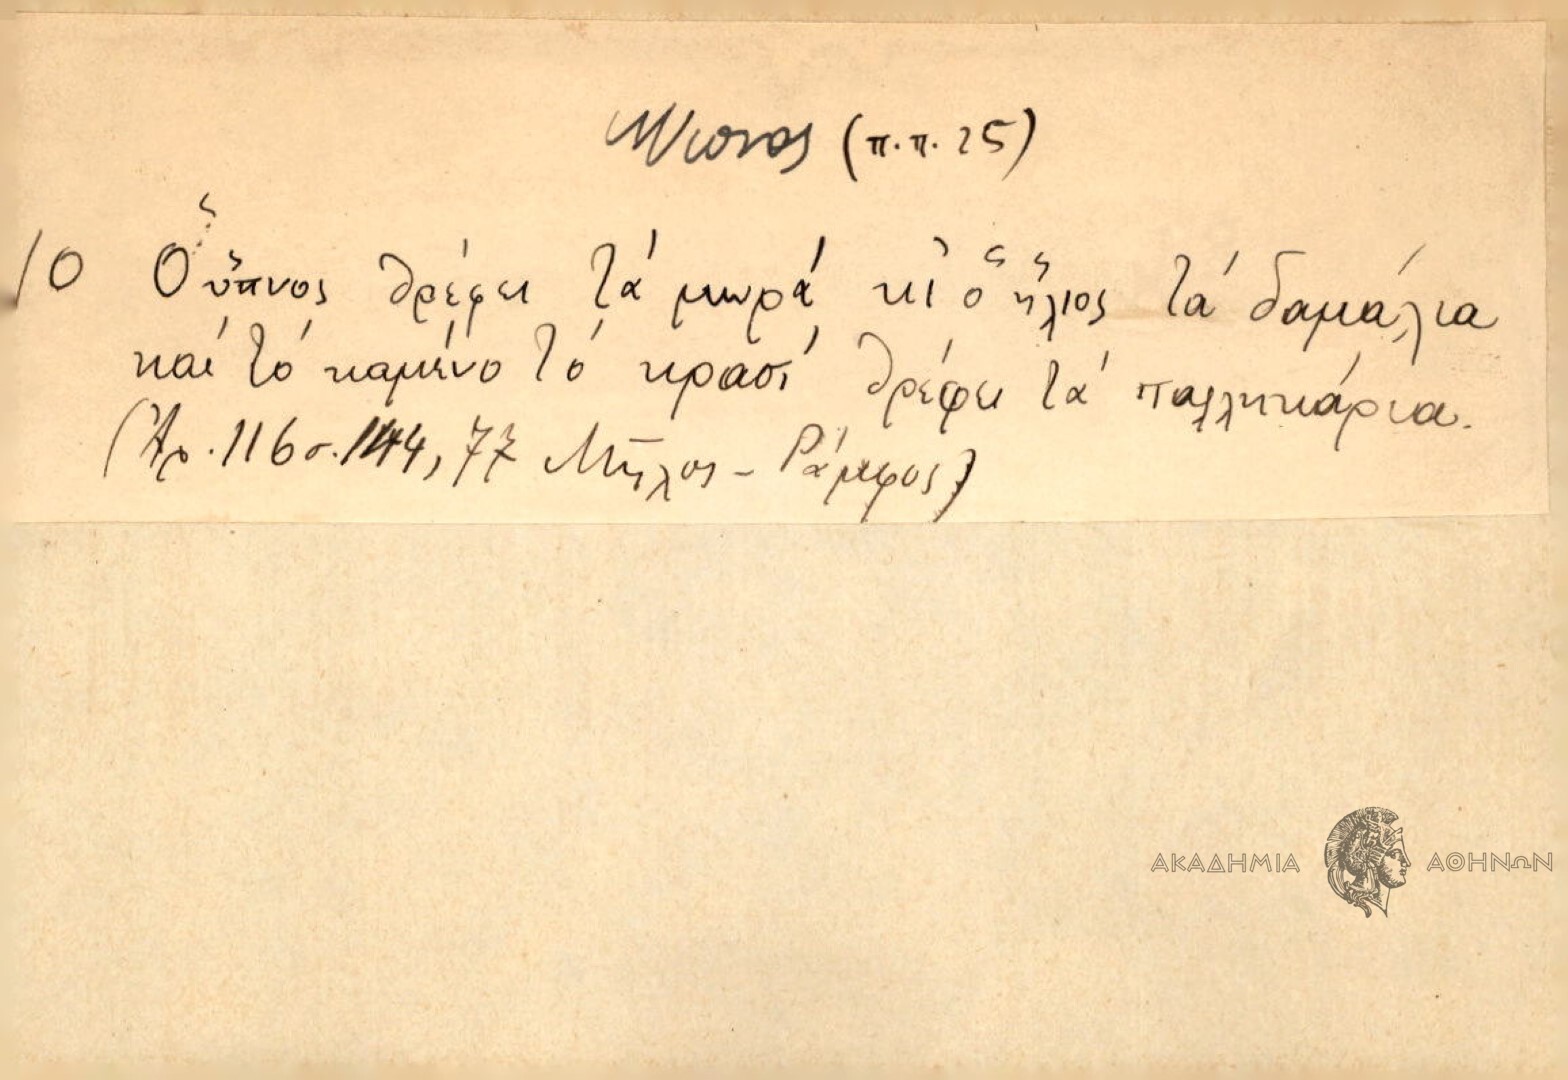 ὕπνος (π.π. 25)
10 Ὁ ὕπνος θρέφει τά μωρά κι ὁ ἥλιος τά δαμάλια
καί τό καμένο τό κρασί θρέφει τά παλληκάρια.
(Ἀρ. 116 σ. 144, 77 Μῆλος - Ράμφος)
ΑΚΑΔΗΜΙΑ ΑΘΗΝΩΝ